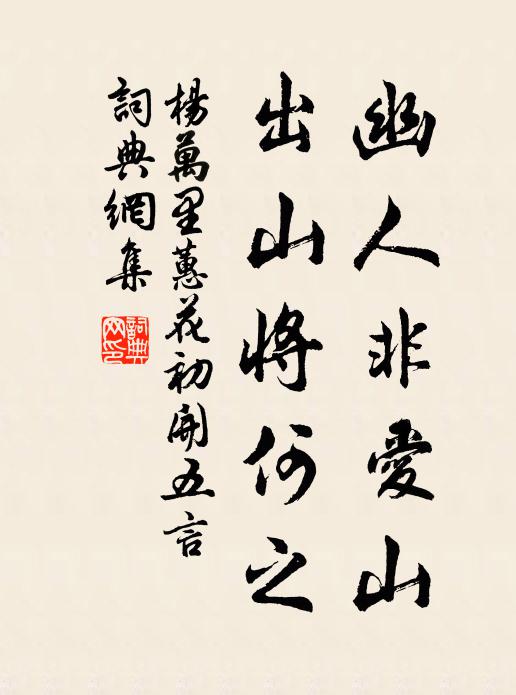 幽人非愛山
出山將何之
楊萬里蕙花初開五言
詞典網集
詞典网印